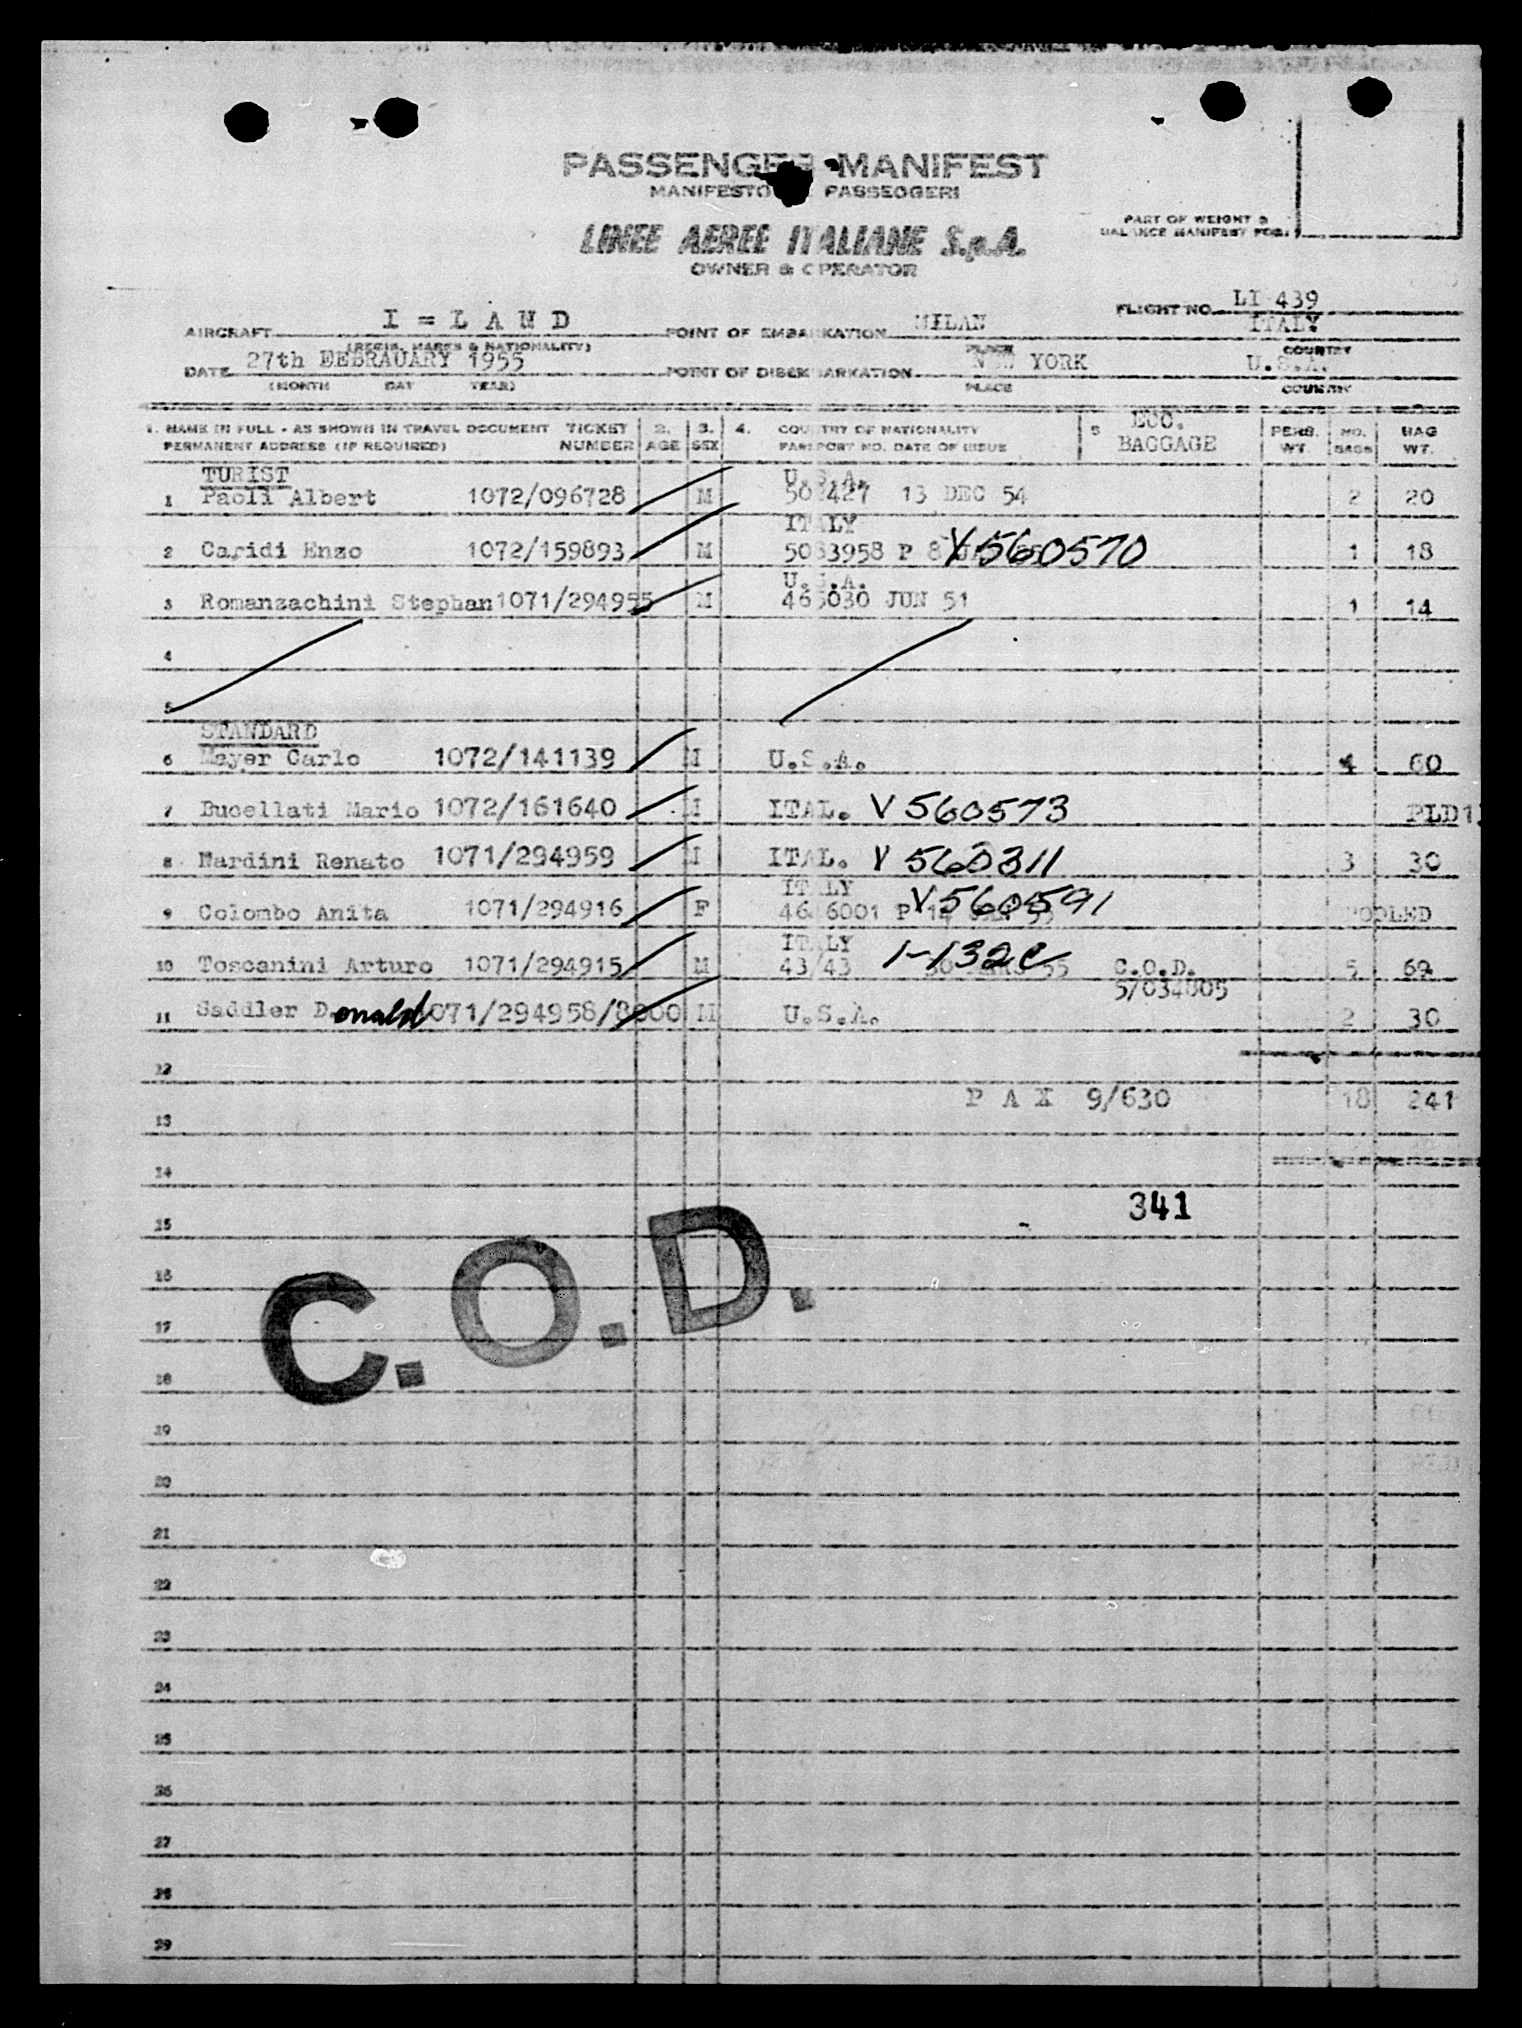 PASSENGER MANIFEST
MANIFESTO PASSEGGERI
LINEE AEREE ITALIANE S.p.A.
OWNER & OPERATOR
PART OF WEIGHT &
BALANCE MANIFEST FOR:
FLIGHT NO. LI 439
AIRCRAFT I = L A N D POINT OF EMBARKATION MILAN ITALY
(REGIS. MARKS & NATIONALITY) PLACE COUNTRY
DATE 27th EEBRAUARY 1955 POINT OF DISEMBARKATION NEW YORK U.S.A.
(MONTH DAY YEAR) PLACE COUNTRY
1. NAME IN FULL - AS SHOWN IN TRAVEL DOCUMENT TICKET 2. 3. 4. COUNTRY OF NATIONALITY 5 ECC. PERS. NO. BAG
PERMANENT ADDRESS (IF REQUIRED) NUMBER AGE SEX PASSPORT NO. DATE OF ISSUE BAGGAGE WT. BAGS WT.
TURIST U.S.A.
1 Paoli Albert 1072/096728 M 13 DEC 54 2 20
ITALY
2 Caridi Enzo 1072/159893 M 5083958 P 8 V 560570 1 18
U.S.A.
3 Romanzachini Stephan 1071/294955 M 465030 JUN 51 1 14
4
5
STANDARD
6 Mayer Carlo 1072/141139 M U.S.A. 4 60
7 Bucellati Mario 1072/161640 M ITAL. V 560573 PLD1
8 Nardini Renato 1071/294959 M ITAL. V 560311 3 30
ITALY
9 Colombo Anita 1071/294916 F P 14 V 560591 POOLED
ITALY
10 Toscanini Arturo 1071/294915 M 43/43 1-132C 55 C.O.D. 5 69
5/034805
11 Saddler Donald 071/294958/8000 M U.S.A. 2 30
12
P A X 9/630 18 241
13
14
341
15
16
C.O.D.
17
18
19
20
21
22
23
24
25
26
27
28
29